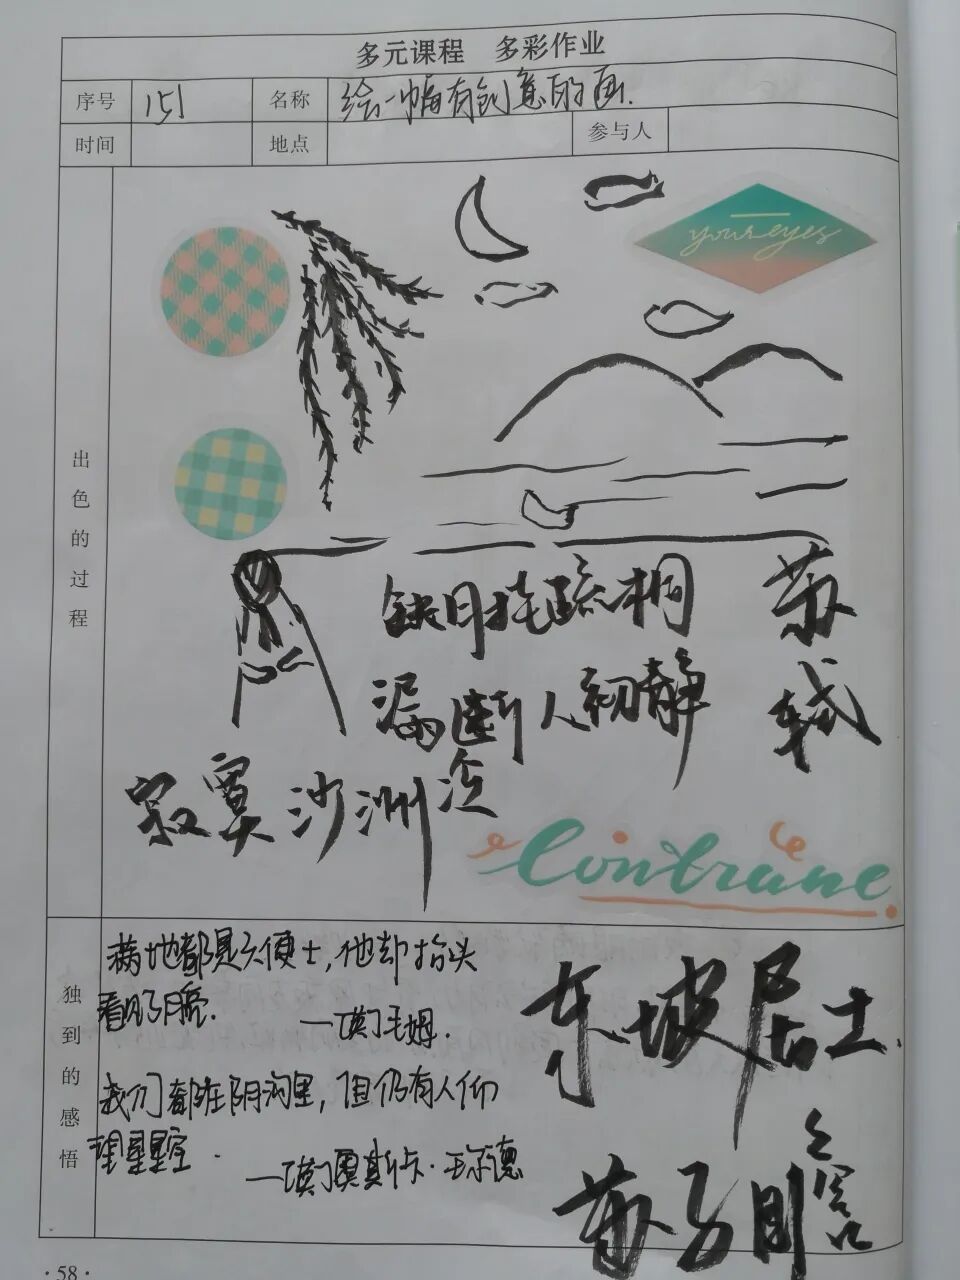 多元课程 多彩作业
序号 151 名称 绘一幅有创意的画.
时间 地点 参与人
your eyes
出色的过程
缺月挂疏桐
漏断人初静
寂寞沙洲冷
苏轼
独到的感悟
满地都是六便士,他却抬头
看见了月亮.
——毛姆.
我们都在阴沟里,但仍有人仰
望星空.
——奥斯卡·王尔德
东坡居士.
苏子瞻
·58·